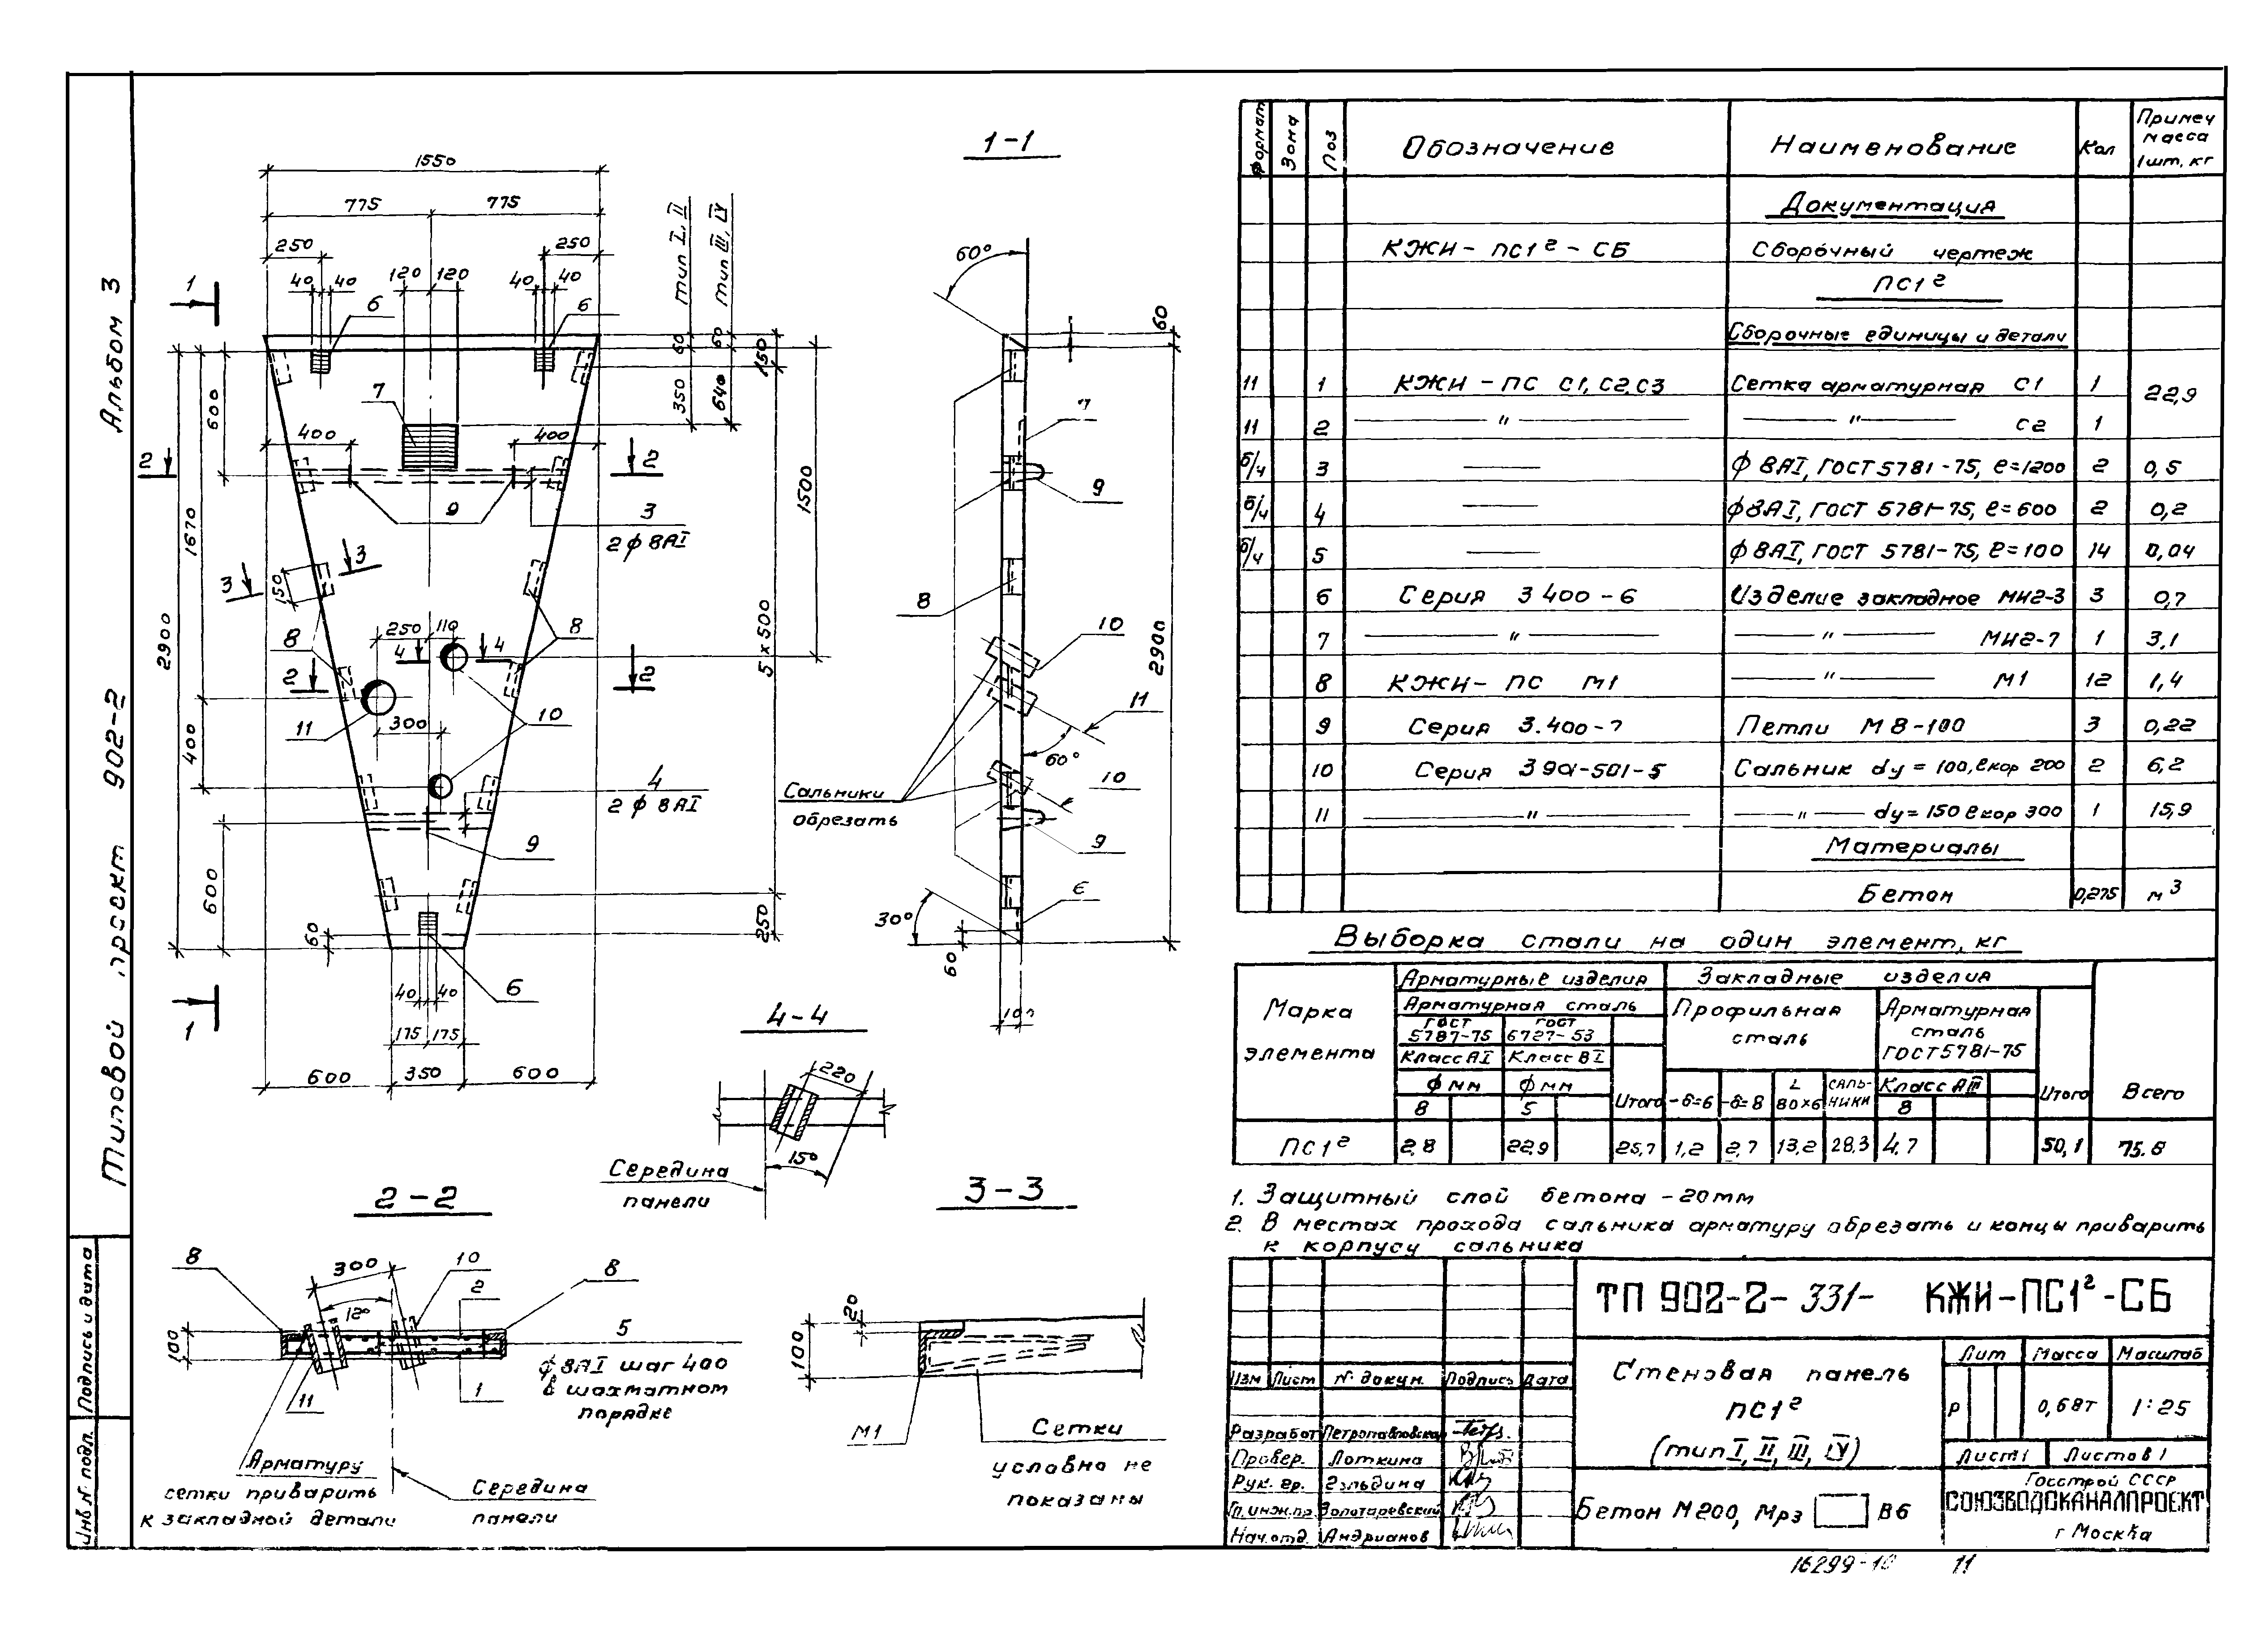 Альбом 3
Типовой проект 902-2
Подпись и дата
Инв. N. подл.
1550
775 775
250 250
40 40 120 120 40 40
тип I, II
тип III, IV
1
6 6
60 60 150
350 640
7
600
400 400
2 2
9
3
2 ф 8АI
1500
1670
2900
3 3
150
8
250 110
4 4
8
5 х 500
2 2
11
300
10
400
4
2 ф 8АI
9
600
60
250
40 40
6
1
175 175
600 350 600
1-1
60°
60
7
9
8
10
11
2900
60°
10
Сальники
обрезать
9
6
30°
60
100
4-4
220
15°
Середина
панели
2-2
8 300 10 8
12°
2
100
5
ф 8АI шаг 400
в шахматном
порядке
1
11
Арматуру
сетки приварить
к закладной детали
Середина
панели
3-3
20
100
М1
Сетки
условно не
показаны
Формат Зона Поз Обозначение Наименование Кол Примеч масса 1шт, кг
Документация
КЖИ - ПС1² - СБ Сборочный чертеж
ПС1²
Сборочные единицы и детали
11 1 КЖИ - ПС С1, С2, С3 Сетка арматурная С1 1 22,9
11 2 — " — — " — С2 1
б/ч 3 — ф 8АI, ГОСТ 5781-75, ℓ=1200 2 0,5
б/ч 4 — ф 8АI, ГОСТ 5781-75, ℓ=600 2 0,2
б/ч 5 — ф 8АI, ГОСТ 5781-75, ℓ=100 14 0,04
6 Серия 3 400-6 Изделие закладное МИ2-3 3 0,7
7 — " — — " — МИ2-7 1 3,1
8 КЖИ- ПС М1 — " — М1 12 1,4
9 Серия 3.400-7 Петли М8-100 3 0,22
10 Серия 3 901-501-5 Сальник dу = 100, ℓкор 200 2 6,2
11 — " — — " — dу = 150 ℓкор 300 1 15,9
Материалы
Бетон 0,275 м³
Выборка стали на один элемент, кг
Марка элемента
Арматурные изделия Закладные изделия
Арматурная сталь Профильная сталь Арматурная сталь ГОСТ 5781-75
ГОСТ 5787-75 ГОСТ 6727-53
Класс АI Класс ВI Класс АIII
ф мм ф мм
8 5 Итого -δ=6 -δ=8 L 80х6 сальники 8 Итого Всего
ПС1² 2,8 22,9 25,7 1,2 2,7 13,2 28,3 4,7 50,1 75.8
1. Защитный слой бетона - 20мм
2. В местах прохода сальника арматуру обрезать и концы приварить
к корпусу сальника
ТП 902-2- 331- КЖИ-ПС1²-СБ
Стеновая панель
ПС1²
(тип I, II, III, IV)
Лит Масса Масштаб
Р 0,68т 1:25
Лист 1 Листов 1
Изм Лист N. докум. Подпись Дата
Разработ Петропавловская
Провер. Лоткина
Рук. гр. Гольдина
Гл.инж.пр. Золотаревский
Нач.отд. Андрианов
Бетон М200, Мрз В6
Госстрой СССР
СОЮЗВОДОКАНАЛПРОЕКТ
г Москва
16299-10 11